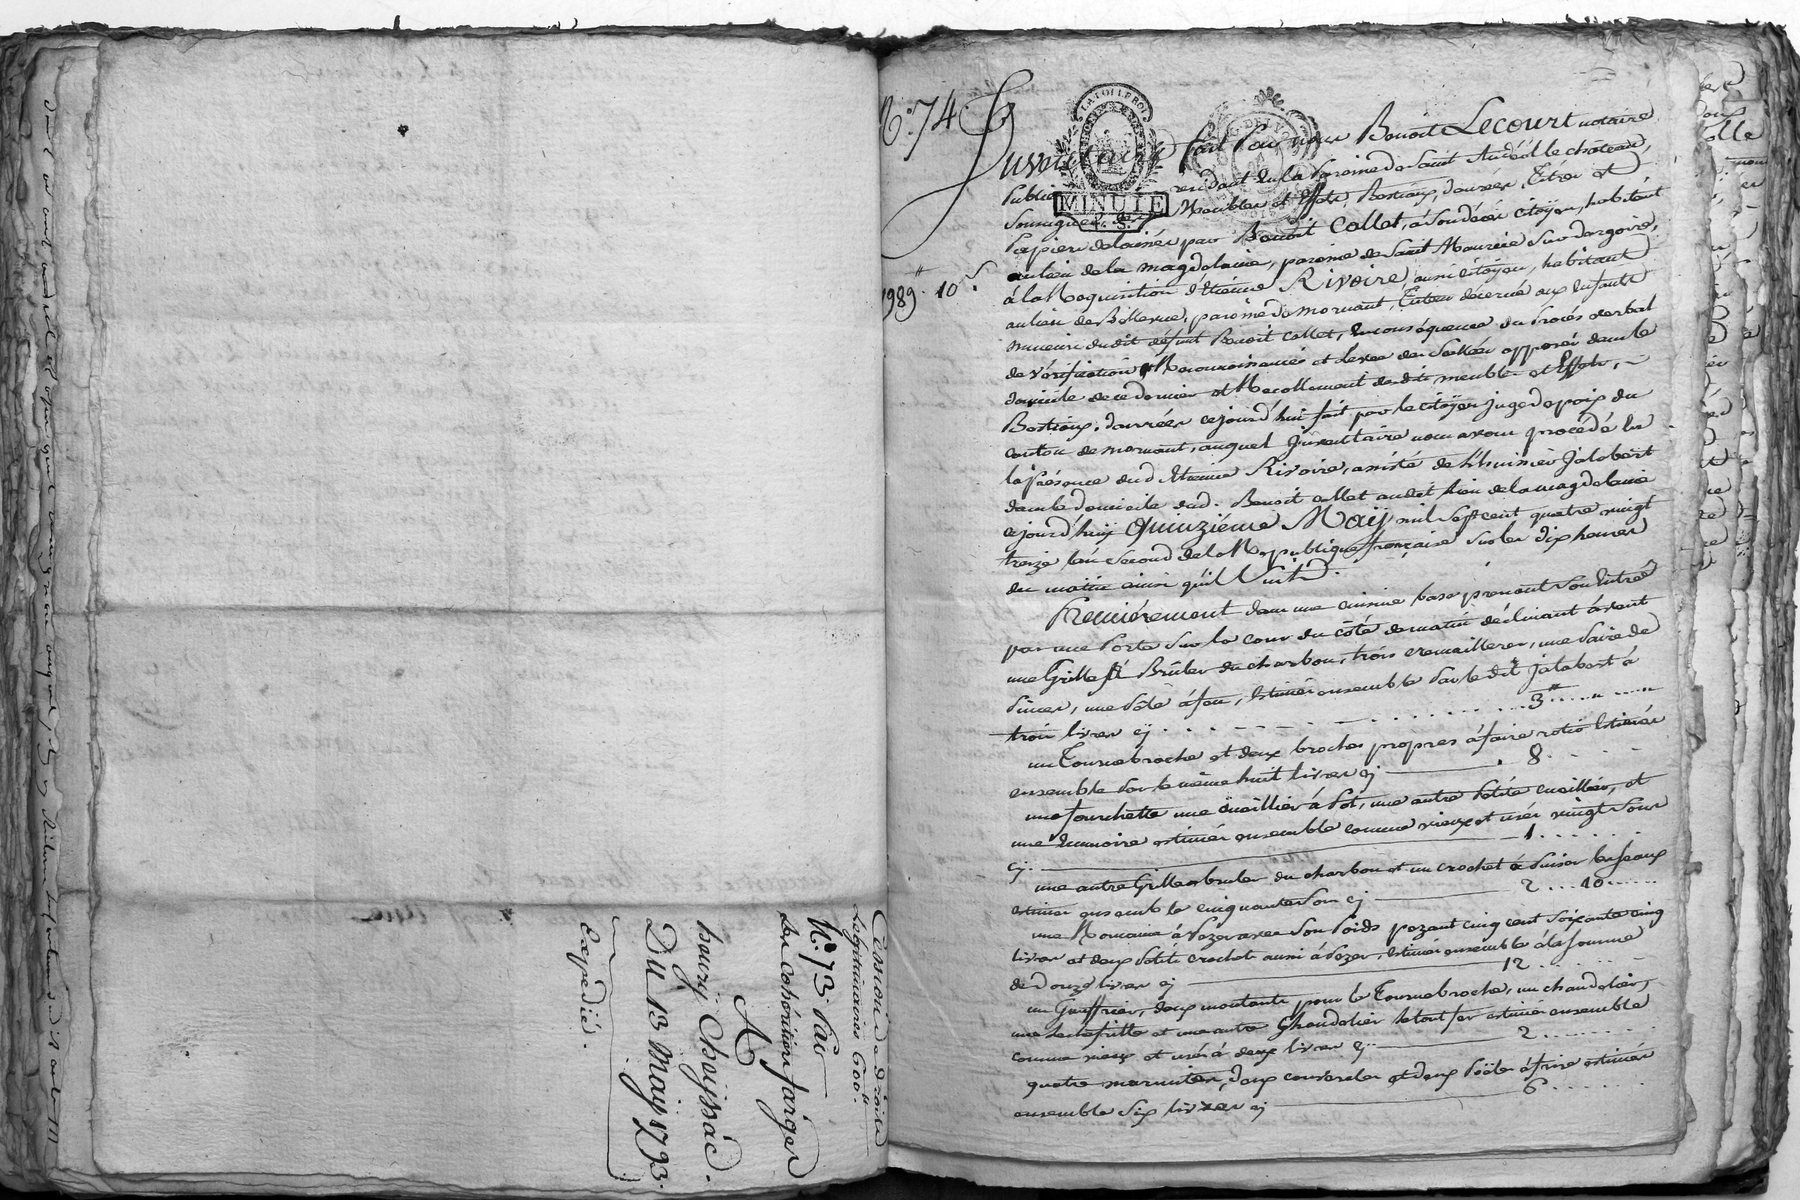 Cession de droits
Legitimaires 600.ll
N.° 73. Par
A
Du 13 Maÿ 1793.
Expedié.
N.° 74.
1989.ll 10.s
LA LOI LE ROI
MINUTE
4. S.
Inventaire fait Par nous Benoit Lecourt notaire
Public residant en la Paroisse de Saint Andéol le chateau,
Soussigné, des Meubles et Effets, Bestiaux, danrées, Titres et
Papiers delaissés par Benoit Collet, à son décès citoÿen, habitant
au lieu de la magdelaine, paroisse de Saint Maurice Sur dargoire,
à la Requisition d'Etienne Rivoire aussi citoÿen, habitant
au lieu de Bellevue, paroisse de mornant, Tuteur décerné aux Enfants
mineurs dudit défunt Benoit Collet, En conséquence du Procès verbal
de vérification Reconnoissance et Levée des Scellés apposés dans le
domicile de ce dernier et Recollement desdits meubles et Effets,
Bestiaux, danrées cejourd'hui fait par le citoÿen juge de paix du
canton de mornant, auquel Inventaire nous avons procédé En
la Présence dud. Etienne Rivoire, assisté de l'huissier Jalabert
dans le domicile dud. Benoit Collet audit lieu de la magdelaine
cejourd'huÿ quinzième Maÿ mil sept cent quatre vingt
treize l'an Second de la République française Sur les dix heures
du matin ainsi qu'il Suit.
Premièrement dans une cuisine basse prenant Son Entrée
par une Porte Sur la cour du côté de matin déclinant à vent
une Grille à Brûler du charbon, trois cremailleres, une Paire de
Pinces, une Pêle à feu, Estimés ensemble Par le dit Jalabert à
trois livres cÿ . . . . . . 3.ll
un Tournebroche et deux broches propres à faire rotir Estimés
ensemble Par le même huit livres cÿ 8.
une fourchette une cueillier à Pot, une autre Petite cueillier, et
une Ecumoire estimés ensemble comme vieux et usés vingt Sous
cÿ 1.
une autre Grille à bruler du charbon et un crochet à Puiser les Seaux
Estimés ensemble cinquante Sous cÿ 2 . . . 10
une Romaine à Pezer avec Son Poids pezant cinq cent Soixante cinq
livres et deux Petits crochets aussi à Pezer, Estimés ensemble à la Somme
de Douze livres cÿ 12
deux montants pour le Tournebroche, un chandelier,
une Lechefritte et une autre Chandelier le tout fer estimés ensemble
comme vieux et usés à deux livres cÿ 2
quatre marmites, deux couvercles et deux Poëles à frire estimés
ensemble Six livres cÿ 6